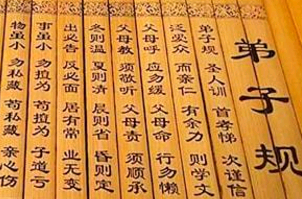 弟子规
弟子规 圣人训 首孝悌 次谨信
泛爱众 而亲仁 有余力 则学文
父母呼 应勿缓 父母命 行勿懒
父母教 须敬听 父母责 须顺承
冬则温 夏则凊 晨则省 昏则定
出必告 反必面 居有常 业无变
事虽小 勿擅为 苟擅为 子道亏
物虽小 勿私藏 苟私藏 亲心伤